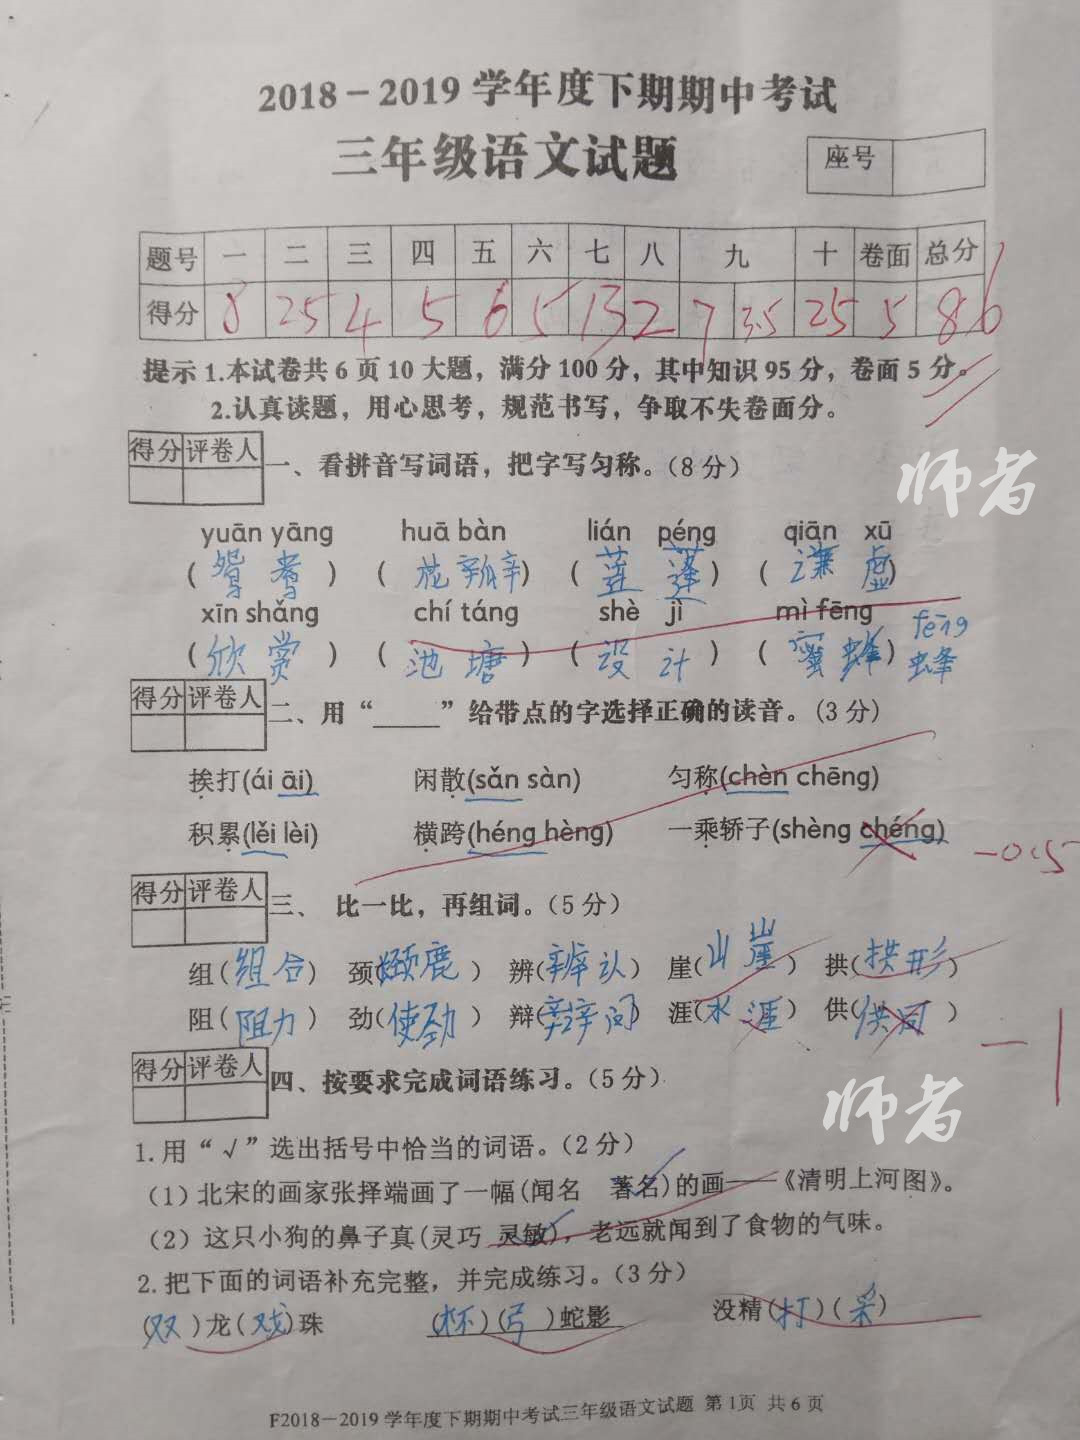 2018－2019学年度下期期中考试
三年级语文试题
座号
题号 一 二 三 四 五 六 七 八 九 十 卷面 总分
得分 8 25 4 5 6 5 13 2 7 3.5 25 5 86
提示 1.本试卷共6页10大题，满分100分，其中知识95分，卷面5分。
2.认真读题，用心思考，规范书写，争取不失卷面分。
得分 评卷人
一、看拼音写词语，把字写匀称。（8分）
师者
yuān yāng huā bàn lián péng qiān xū
（鸳鸯）（花瓣）（莲蓬）（谦虚）
xīn shǎng chí táng shè jì mì fēng fēng
（欣赏）（池塘）（设计）（蜜蜂）蜂
得分 评卷人
二、用“____”给带点的字选择正确的读音。（3分）
挨打(ái āi) 闲散(sǎn sàn) 匀称(chèn chēng)
积累(lěi lèi) 横跨(héng hèng) 一乘轿子(shèng chéng) -0.5
得分 评卷人
三、 比一比，再组词。（5分）
组(组合) 颈(颈鹿) 辨(辨认) 崖(山崖) 拱(拱形)
阻(阻力) 劲(使劲) 辩(辩问) 涯(水涯) 供(供同) -1
得分 评卷人
四、按要求完成词语练习。（5分）
师者
1.用“√”选出括号中恰当的词语。（2分）
（1）北宋的画家张择端画了一幅(闻名 著名)的画——《清明上河图》。
（2）这只小狗的鼻子真(灵巧 灵敏)，老远就闻到了食物的气味。
2.把下面的词语补充完整，并完成练习。（3分）
(双)龙(戏)珠 (杯)(弓)蛇影 没精(打)(采)
F2018－2019学年度下期期中考试三年级语文试题 第1页 共6页